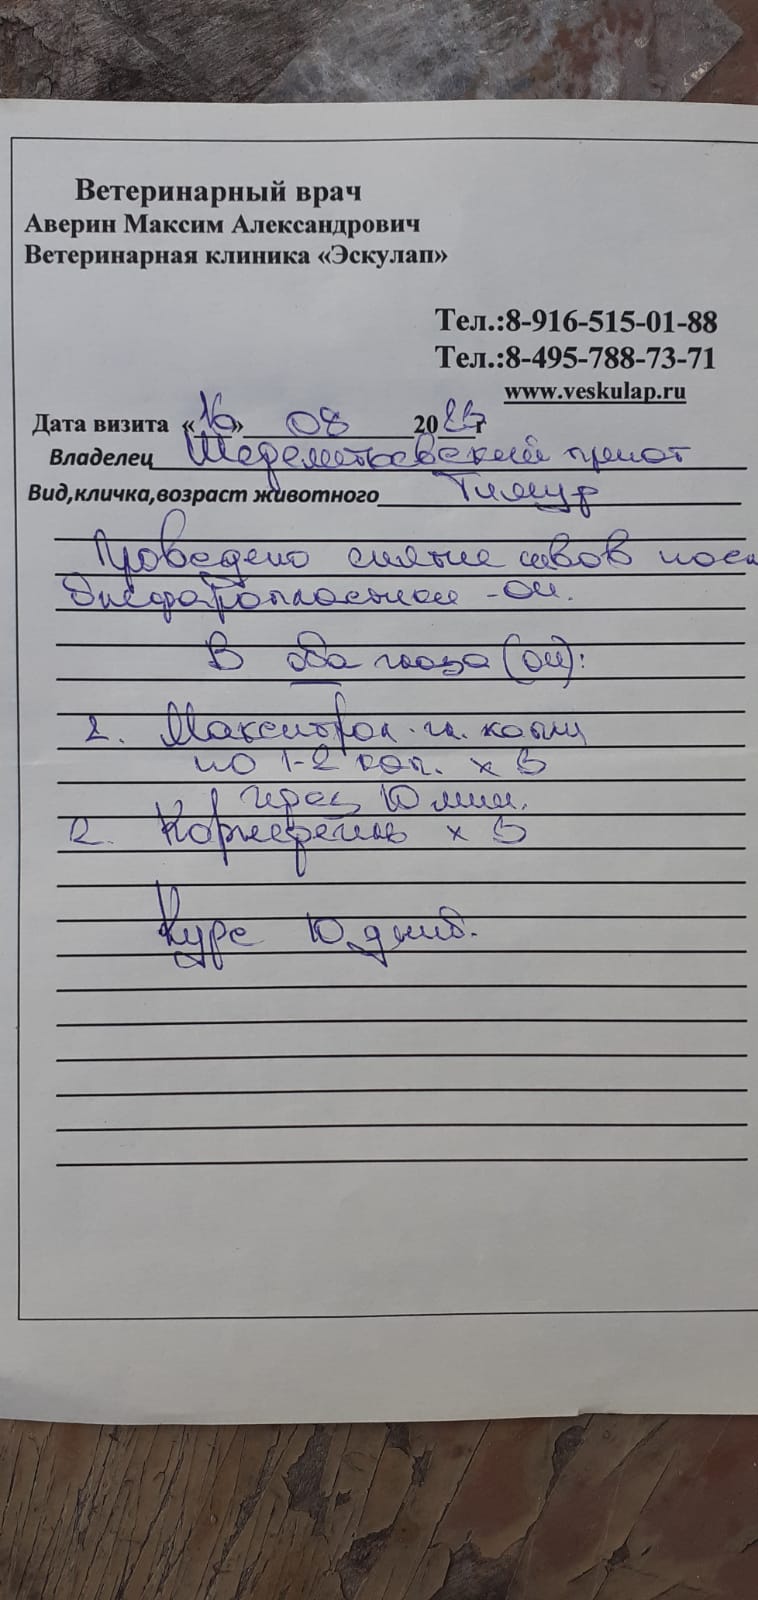 Ветеринарный врач
Аверин Максим Александрович
Ветеринарная клиника «Эскулап»
Тел.:8-916-515-01-88
Тел.:8-495-788-73-71
www.veskulap.ru
Дата визита «16» 08 20 г
Владелец Шереметьевский приют
Вид,кличка,возраст животного Тимур
Проведено снятие швов после
блефаропластики - ОИ.
В оба глаза (ОИ):
1. Макситрол гл. капли
по 1-2 кап. х 3
через 10 мин.
2. Корнерегель х 3
Курс 10 дней.